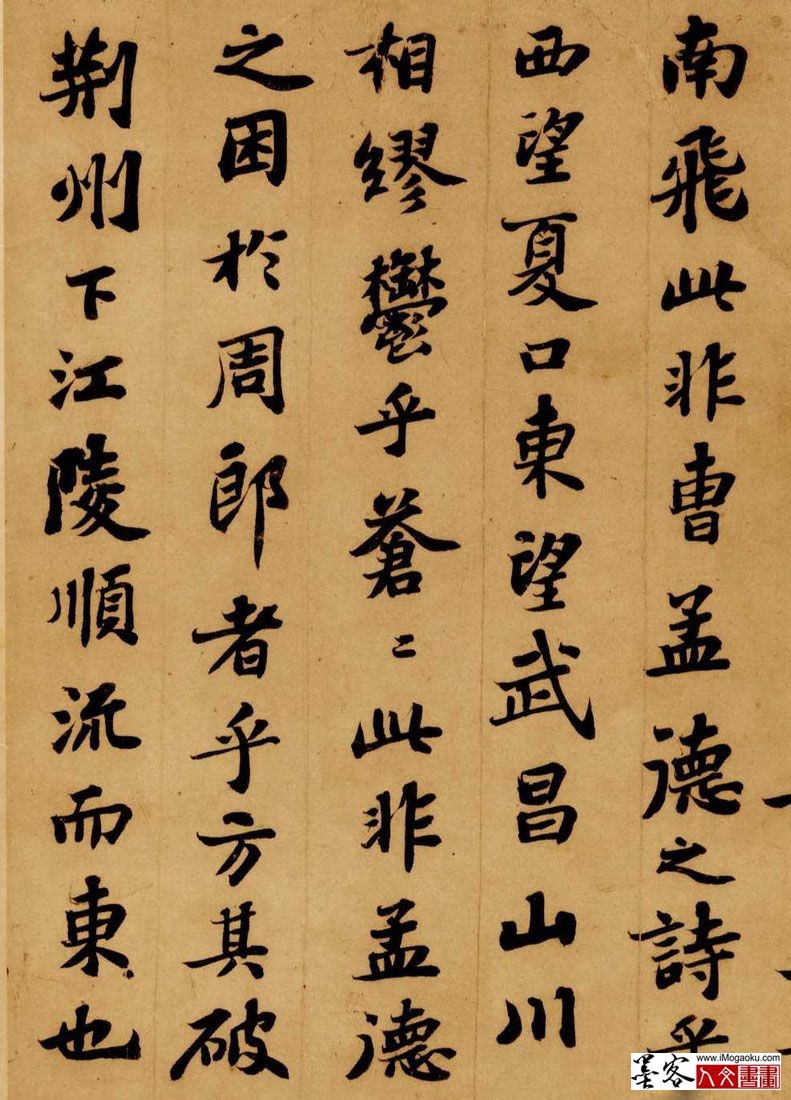 南飛此非曹孟德之詩乎
西望夏口東望武昌山川
相繆鬱乎蒼〻此非孟德
之困於周郎者乎方其破
荆州下江陵順流而東也
墨客
www.iMogaoku.com
人文書畫